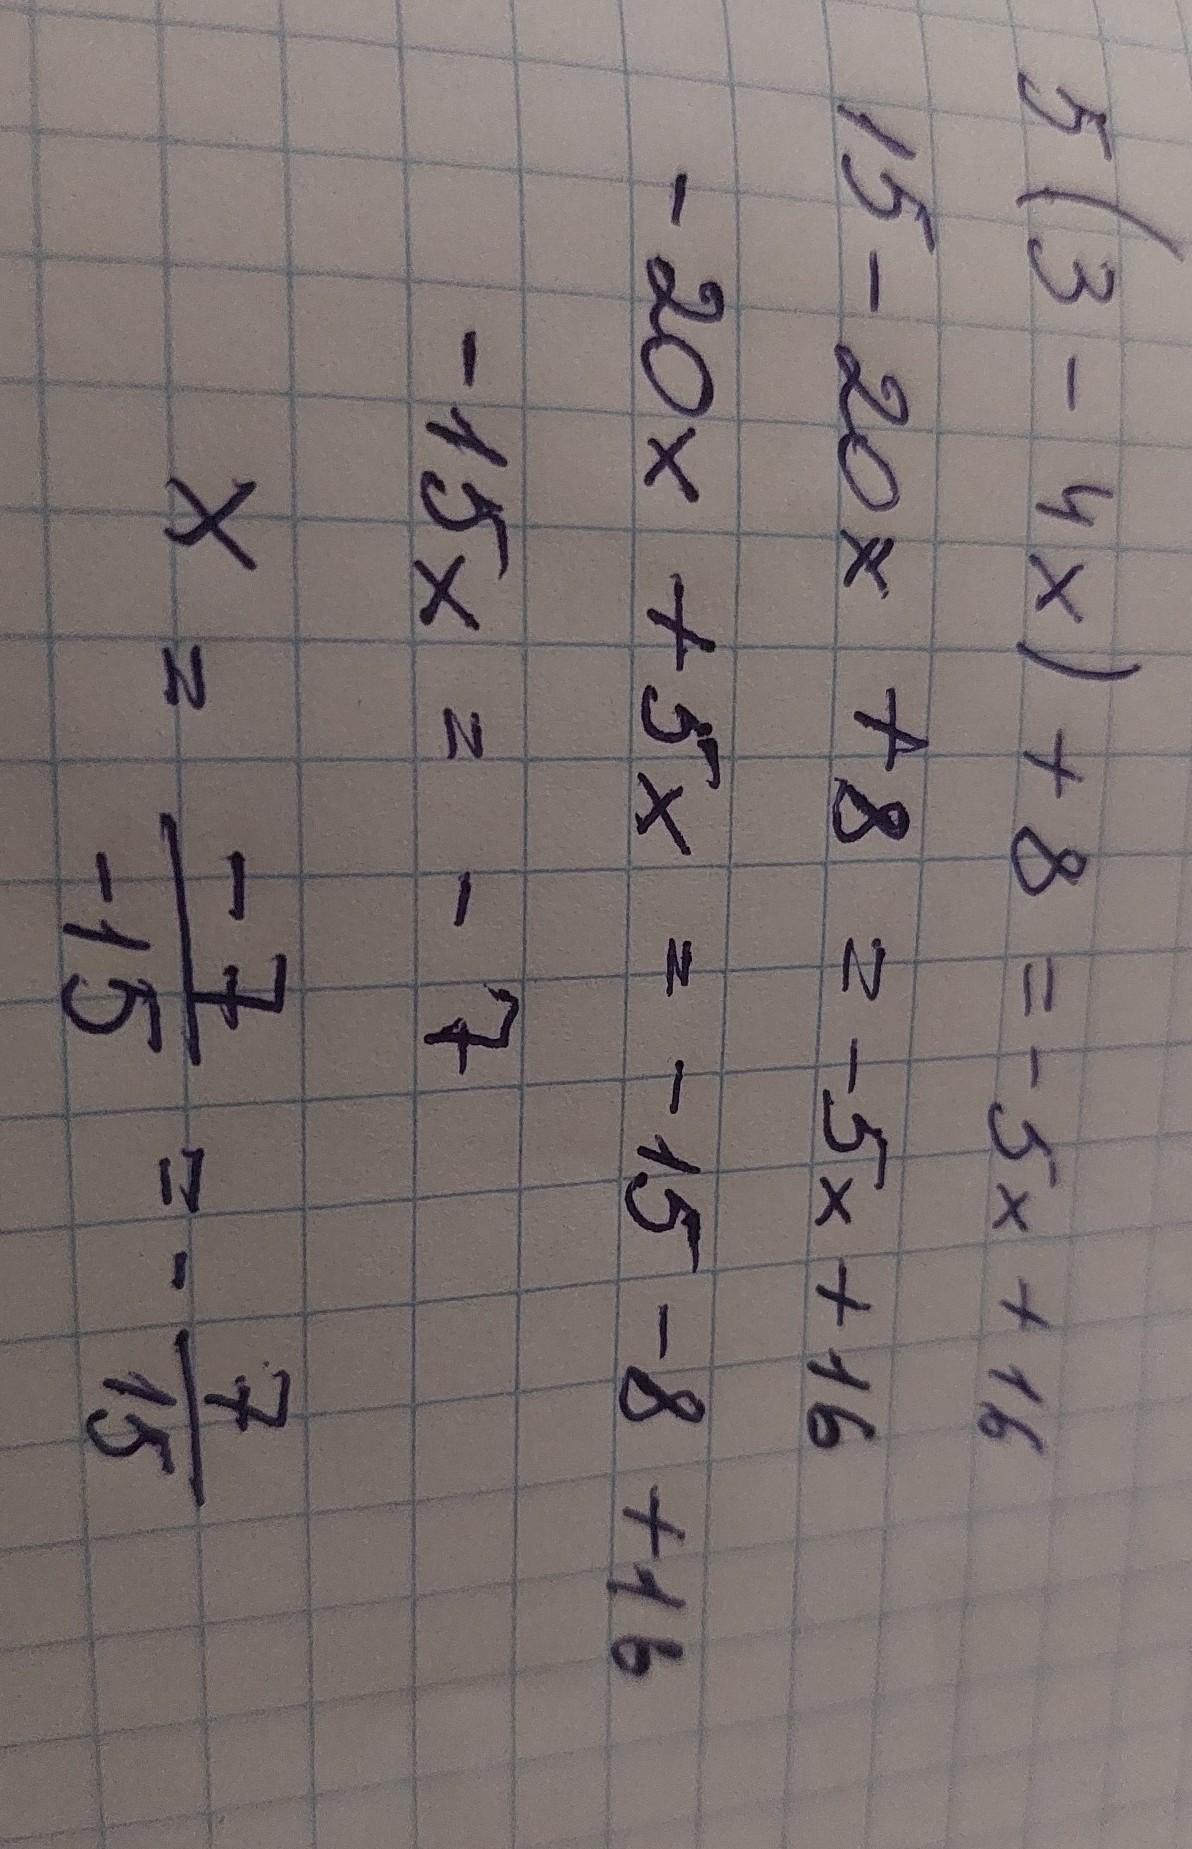 5(3 - 4x) + 8 = -5x + 16
15 - 20x + 8 = -5x + 16
-20x + 5x = -15 - 8 + 16
-15x = -7
x = -7/-15 = -7/15